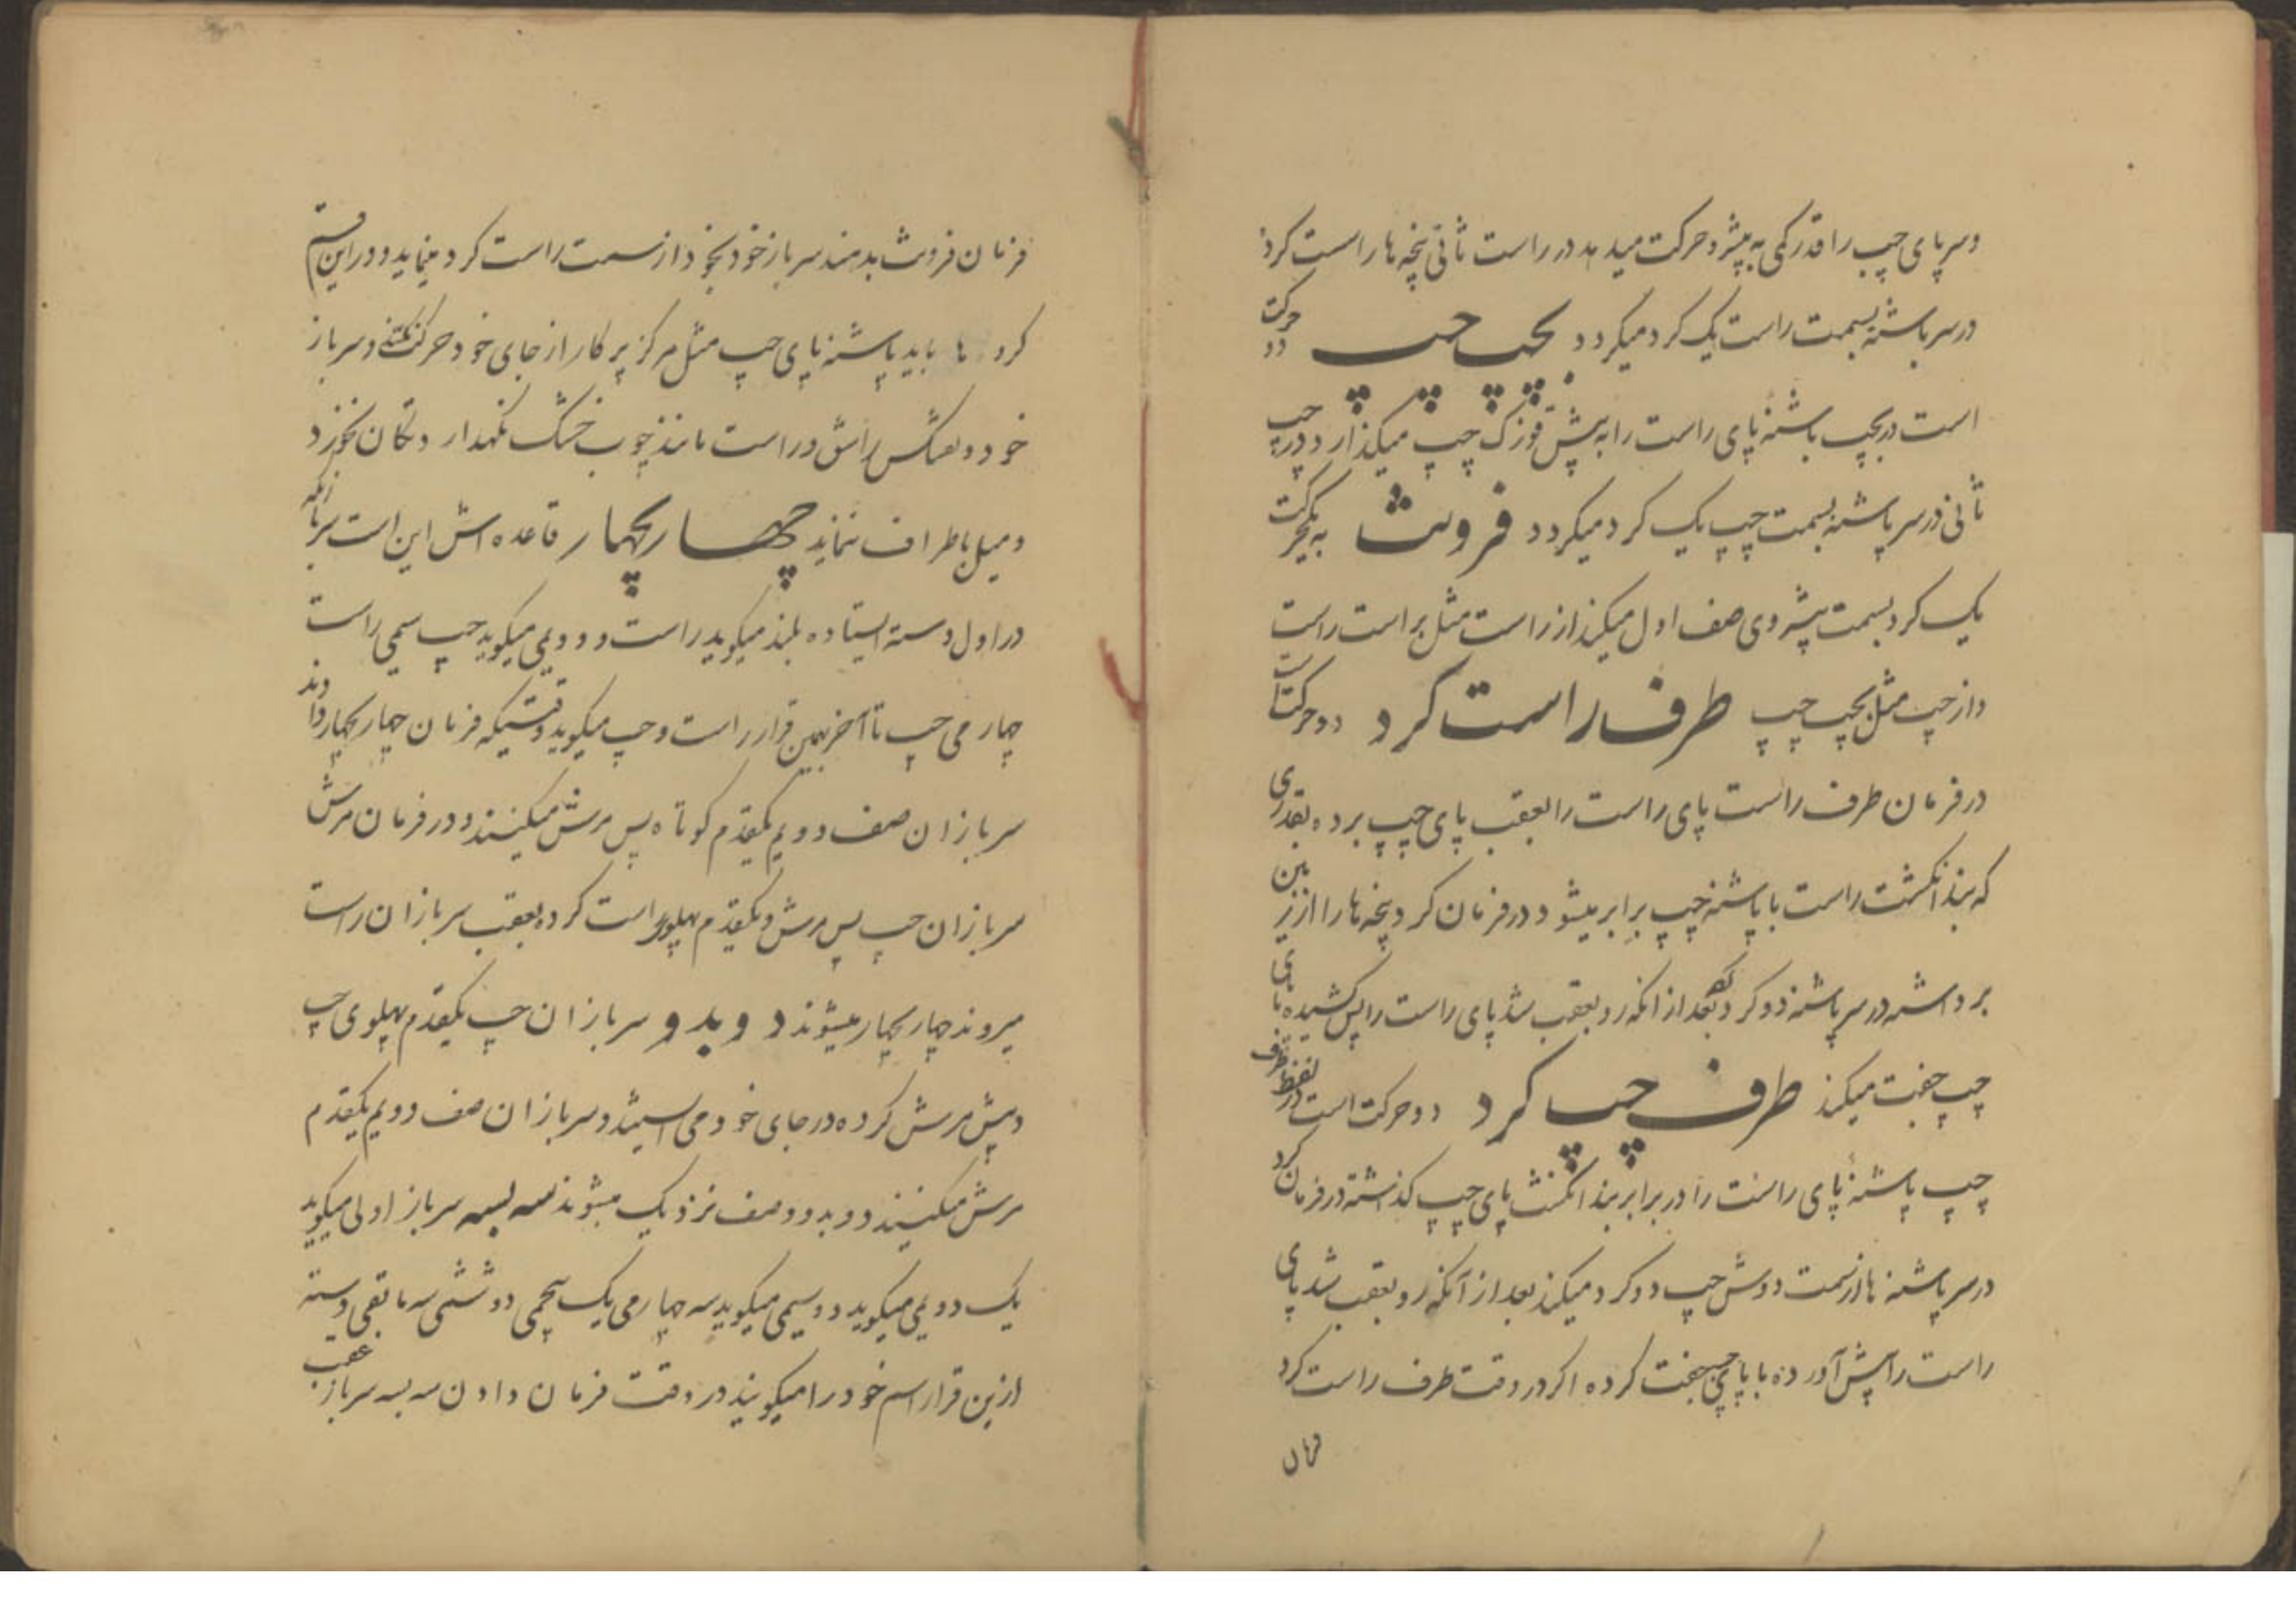 وسر پای چپ را قدر کمی به پیشرو حرکت میدهد در راست ثانی پنجه‌ها راست کرده
در سر پاشنه بسمت راست یک کرد میکردد بچپ چپ دو حرکت
است در بچپ پاشنهٔ پای راست را به پیش قوزک چپ میکذارد و در چپ
ثانی در سر پاشنه بسمت چپ یک کرد میکردد فرونت به یکحرکت
یک کرد بسمت پیشروی صف اول میکند از راست مثل براست راست
و از چپ مثل بچپ چپ طرف راست کرد دو حرکت است
در فرمان طرف راست پای راست را بعقب پای چپ برده بقدری
که بند انکشت راست با پاشنه چپ برابر میشود و در فرمان کرد پنجه‌ها را از زمین
برداشته در سر پاشنه دو کرد کرده بعد از انکه رو بعقب شد پای راست را پس کشیده با پای
چپ جفت میکند طرف چپ کرد دو حرکت است در لفظ طرف
چپ پاشنهٔ پای راست را در برابر بند انکشت پای چپ کذاشته در فرمان کرد
در سر پاشنه‌ها از سمت دوش چپ دو کرد میکند بعد از آنکه رو بعقب شد پای
راست را پیش آورده با پای چپ جفت کرده اکر در وقت طرف راست کرد
فرمان
فرمان فرونت بدهند سرباز خود بخود از سمت راست کرد مینماید و در این قسم
کردها باید پاشنه پای چپ مثل مرکز پرکار از جای خود حرکت نکند و سرباز
خود و تفنکش راشق و راست مانند چوب خشک نکهدارد و تکان نخورد
و میل باطراف ننماید چهار بچهار قاعده اش این است سربازیکه
در اول دسته ایستاده بلند میکوید راست و دویمی میکوید چپ سیمی راست
چهارمی چپ تا آخر بهمین قرار راست و چپ میکوید وقتیکه فرمان چهار بچهار دادند
سربازان صف دویم یکقدم کوتاه پس مرش میکنند و در فرمان مرش
سربازان چپ پس مرش و یکقدم پهلوی راست کرده بعقب سربازان راست
میروند چهار بچهار میشوند دو بدو سربازان چپ یکقدم پهلوی چپ
و پیش مرش کرده در جای خود می‌ایستند و سربازان صف دویم یکقدم
مرش میکنند دو بدو و صف نزدیک میشوند سه بسه سرباز اولی میکوید
یک دویمی میکوید دو سیمی میکوید سه چهارمی یک پنجمی دو ششمی سه مابقی دسته
ازین قرار اسم خود را میکویند در وقت فرمان دادن سه بسه سرباز عقب